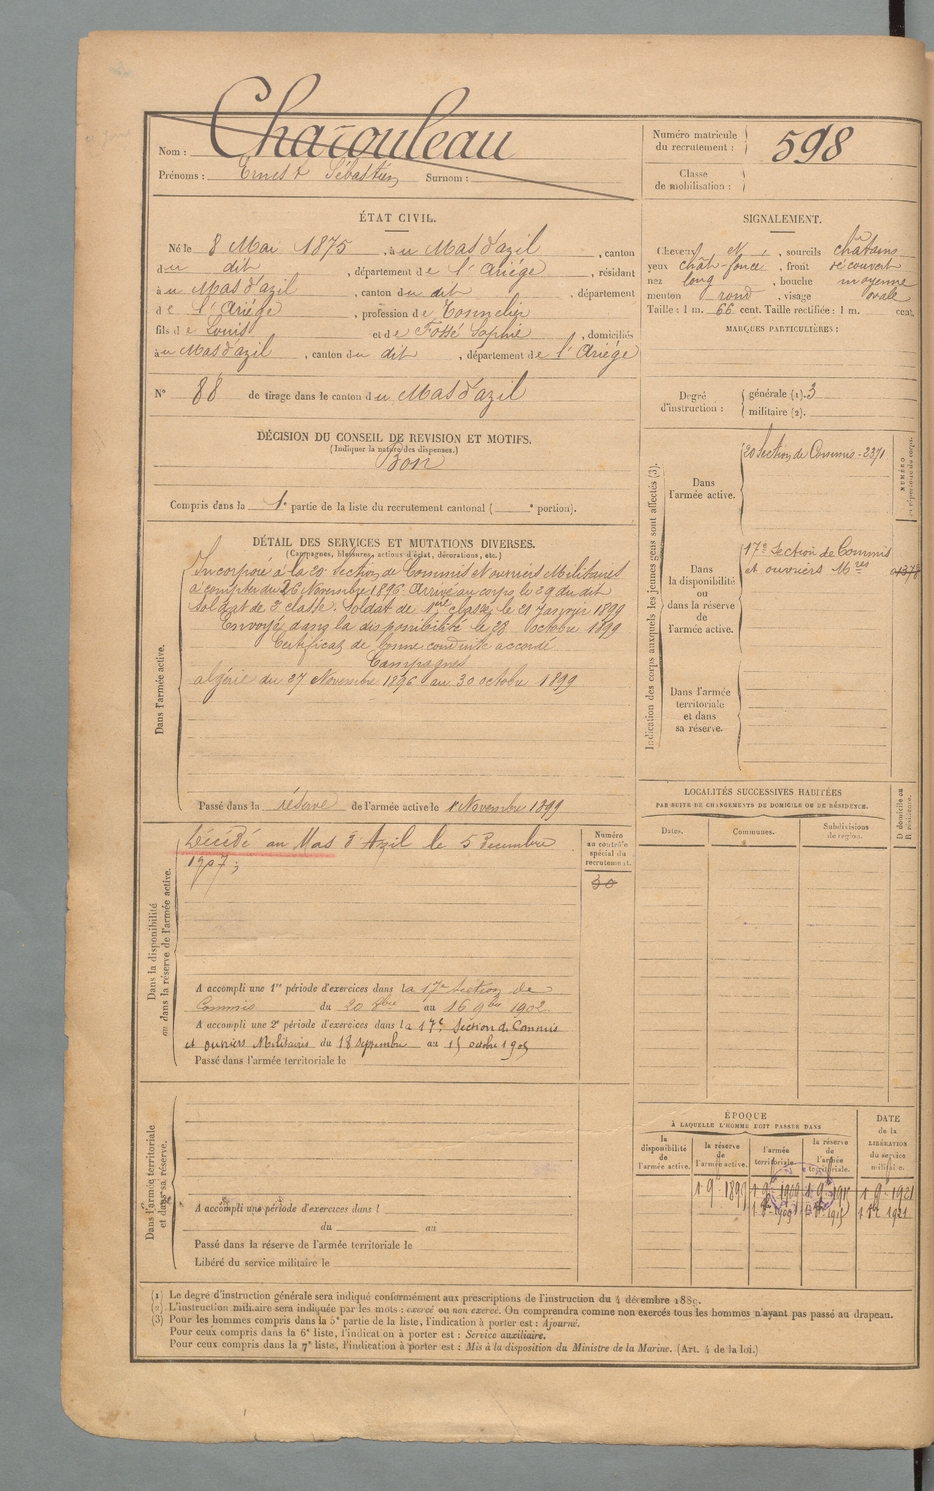 Nom : Charouleau
Prénoms : Ernest Sébastien Surnom :
Numéro matricule du recrutement : 598
Classe de mobilisation :
ÉTAT CIVIL.
Né le 8 Mai 1875, à u Mas d'azil, canton
du dit, département de l'Ariège, résidant
à u Mas d'azil, canton du dit, département
de l'Ariège, profession de Tonnelier
fils de Louis et de Fossé Sophie, domiciliés
à u Mas d'azil, canton du dit, département de l'Ariége
N° 88 de tirage dans le canton du Mas d'azil
SIGNALEMENT.
Cheveux et, sourcils châtains
yeux chât-foncé, front découvert
nez long, bouche moyenne
menton rond, visage ovale
Taille : 1 m. 66 cent. Taille rectifiée : 1 m. cent.
MARQUES PARTICULIÈRES :
Degré d'instruction : générale (1). 3
militaire (2).
DÉCISION DU CONSEIL DE REVISION ET MOTIFS.
(Indiquer la nature des dispenses.)
Bon
Compris dans la 1e partie de la liste du recrutement cantonal ( e portion).
DÉTAIL DES SERVICES ET MUTATIONS DIVERSES.
(Campagnes, blessures, actions d'éclat, décorations, etc.)
Dans l'armée active.
Incorporé à la 20e Section de Commis et ouvriers Militaires
à compter du 26 Novembre 1896. Arrivé au corps le 29 du dit
Soldat de 2e classe. Soldat de 1ère classe, le 21 Janvier 1899
Envoyé dans la disponibilité le 28 octobre 1899
Certificat de bonne conduite accordé
Campagnes
algérie du 27 Novembre 1896 au 30 octobre 1899
Passé dans la réserve de l'armée active le 1 Novembre 1899
Indication des corps auxquels les jeunes gens sont affectés (3).
Dans l'armée active.
20 Section de Commis - 2371
NUMÉRO au répertoire du corps.
Dans la disponibilité ou dans la réserve de l'armée active.
17e Section de Commis
et ouvriers Mres
Dans l'armée territoriale et dans sa réserve.
Dans la disponibilité ou dans la réserve de l'armée active.
Décédé au Mas d'Azil le 5 Décembre
1907 ;
Numéro au contrôle spécial du recrutement.
30
A accompli une 1re période d'exercices dans la 17e Section de
Commis du 20 8bre au 16 9bre 1902
A accompli une 2e période d'exercices dans la 17e Section de Commis
et ouvriers Militaires du 18 septembre au 15 octobre 1905
Passé dans l'armée territoriale le
LOCALITÉS SUCCESSIVES HABITÉES
PAR SUITE DE CHANGEMENTS DE DOMICILE OU DE RÉSIDENCE.
Dates. Communes. Subdivisions de région. D domicile ou R résidence.
ÉPOQUE
À LAQUELLE L'HOMME DOIT PASSER DANS
la disponibilité de l'armée active.
la réserve de l'armée active.
l'armée territoriale.
la réserve de l'armée territoriale.
DATE de la LIBÉRATION du service militaire.
1 9 1899 1 9 1909 1 9 1915 1 9 1921
Dans l'armée territoriale et dans sa réserve.
A accompli une période d'exercices dans l
du au
Passé dans la réserve de l'armée territoriale le
Libéré du service militaire le
(1) Le degré d'instruction générale sera indiqué conformément aux prescriptions de l'instruction du 4 décembre 1889.
(2) L'instruction militaire sera indiquée par les mots : exercé ou non exercé. On comprendra comme non exercés tous les hommes n'ayant pas passé au drapeau.
(3) Pour les hommes compris dans la 5e partie de la liste, l'indication à porter est : Ajourné.
Pour ceux compris dans la 6e liste, l'indication à porter est : Service auxiliaire.
Pour ceux compris dans la 7e liste, l'indication à porter est : Mis à la disposition du Ministre de la Marine. (Art. 4 de la loi.)